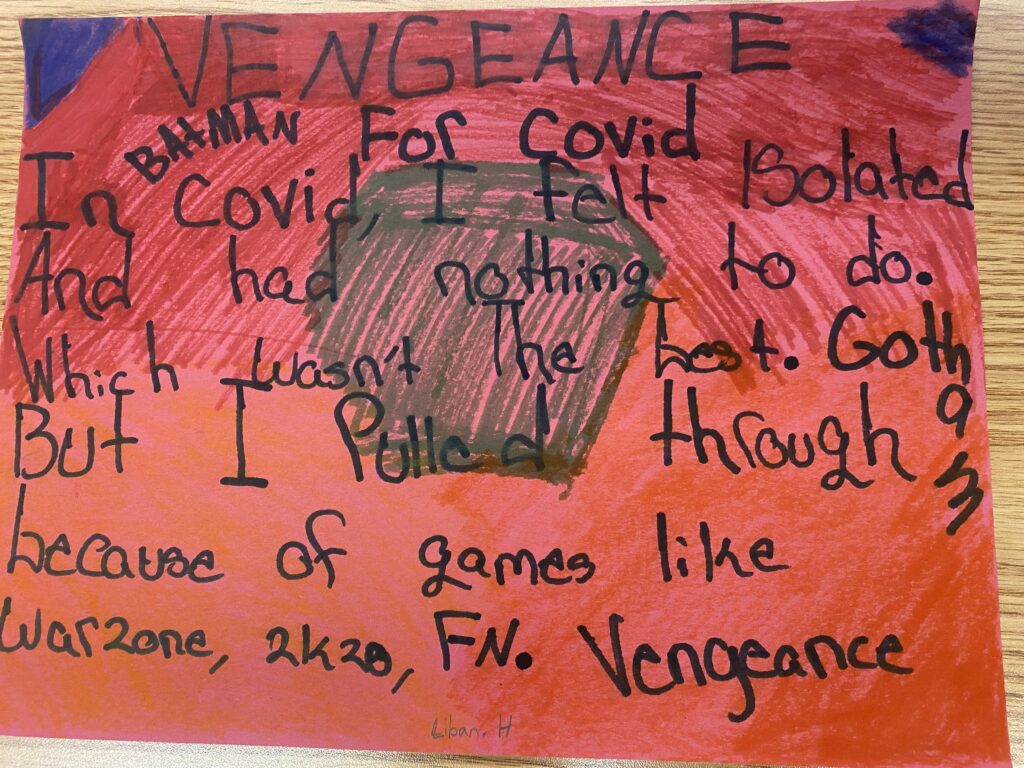 VENGEANCE
BATMAN For Covid
In Covid, I felt Isolated
And had nothing to do.
Which wasn't The best. Goth
But I Pulled through
am
because of games like
Warzone, 2k20, FN. Vengeance
Liban. H